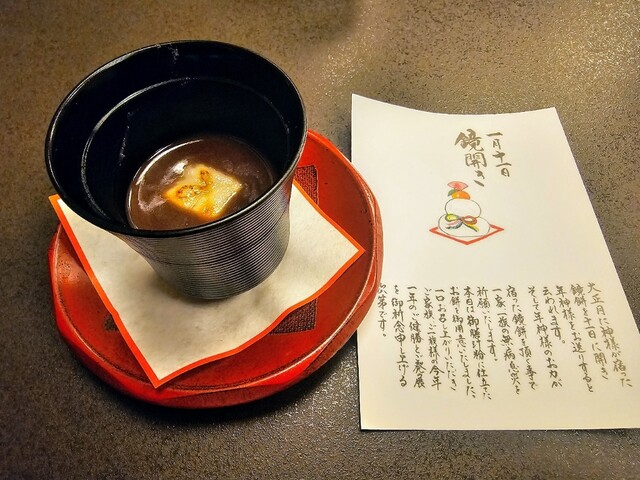 一月十一日
鏡開き
大正月に神様が宿った
鏡餅を十一日に開き
年神様をお送りすると
云われます。
そして年神様のお力が
宿った鏡餅を頂く事で
一家一族の無病息災を
祈願いたします。
本日は御膳汁粉に仕立てた
お餅を御用意いたしました。
一口お召し上がりいただき
ご家族、ご一族様の今年
一年のご健勝と、ご発展
を御祈念申し上げる
次第です。